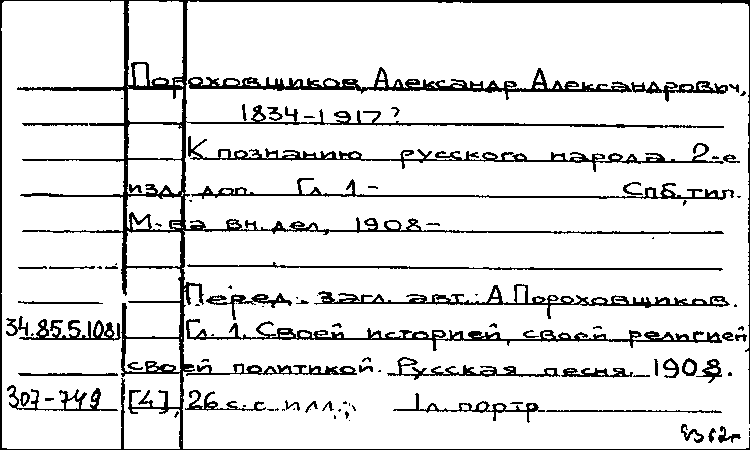 Пороховщиков, Александр Александрович,
1834-1917?
К познанию русского народа. 2-е
изд. доп. Гл. 1.- Спб, тип.
М-ва вн. дел, 1908-
Перед. загл. авт.: А. Пороховщиков.
34.85.5.1081 Гл. 1. Своей историей, своей религией,
своей политикой. Русская песня. 1908.
307-749 [4], 26 с. с илл.; 1 л. портр.